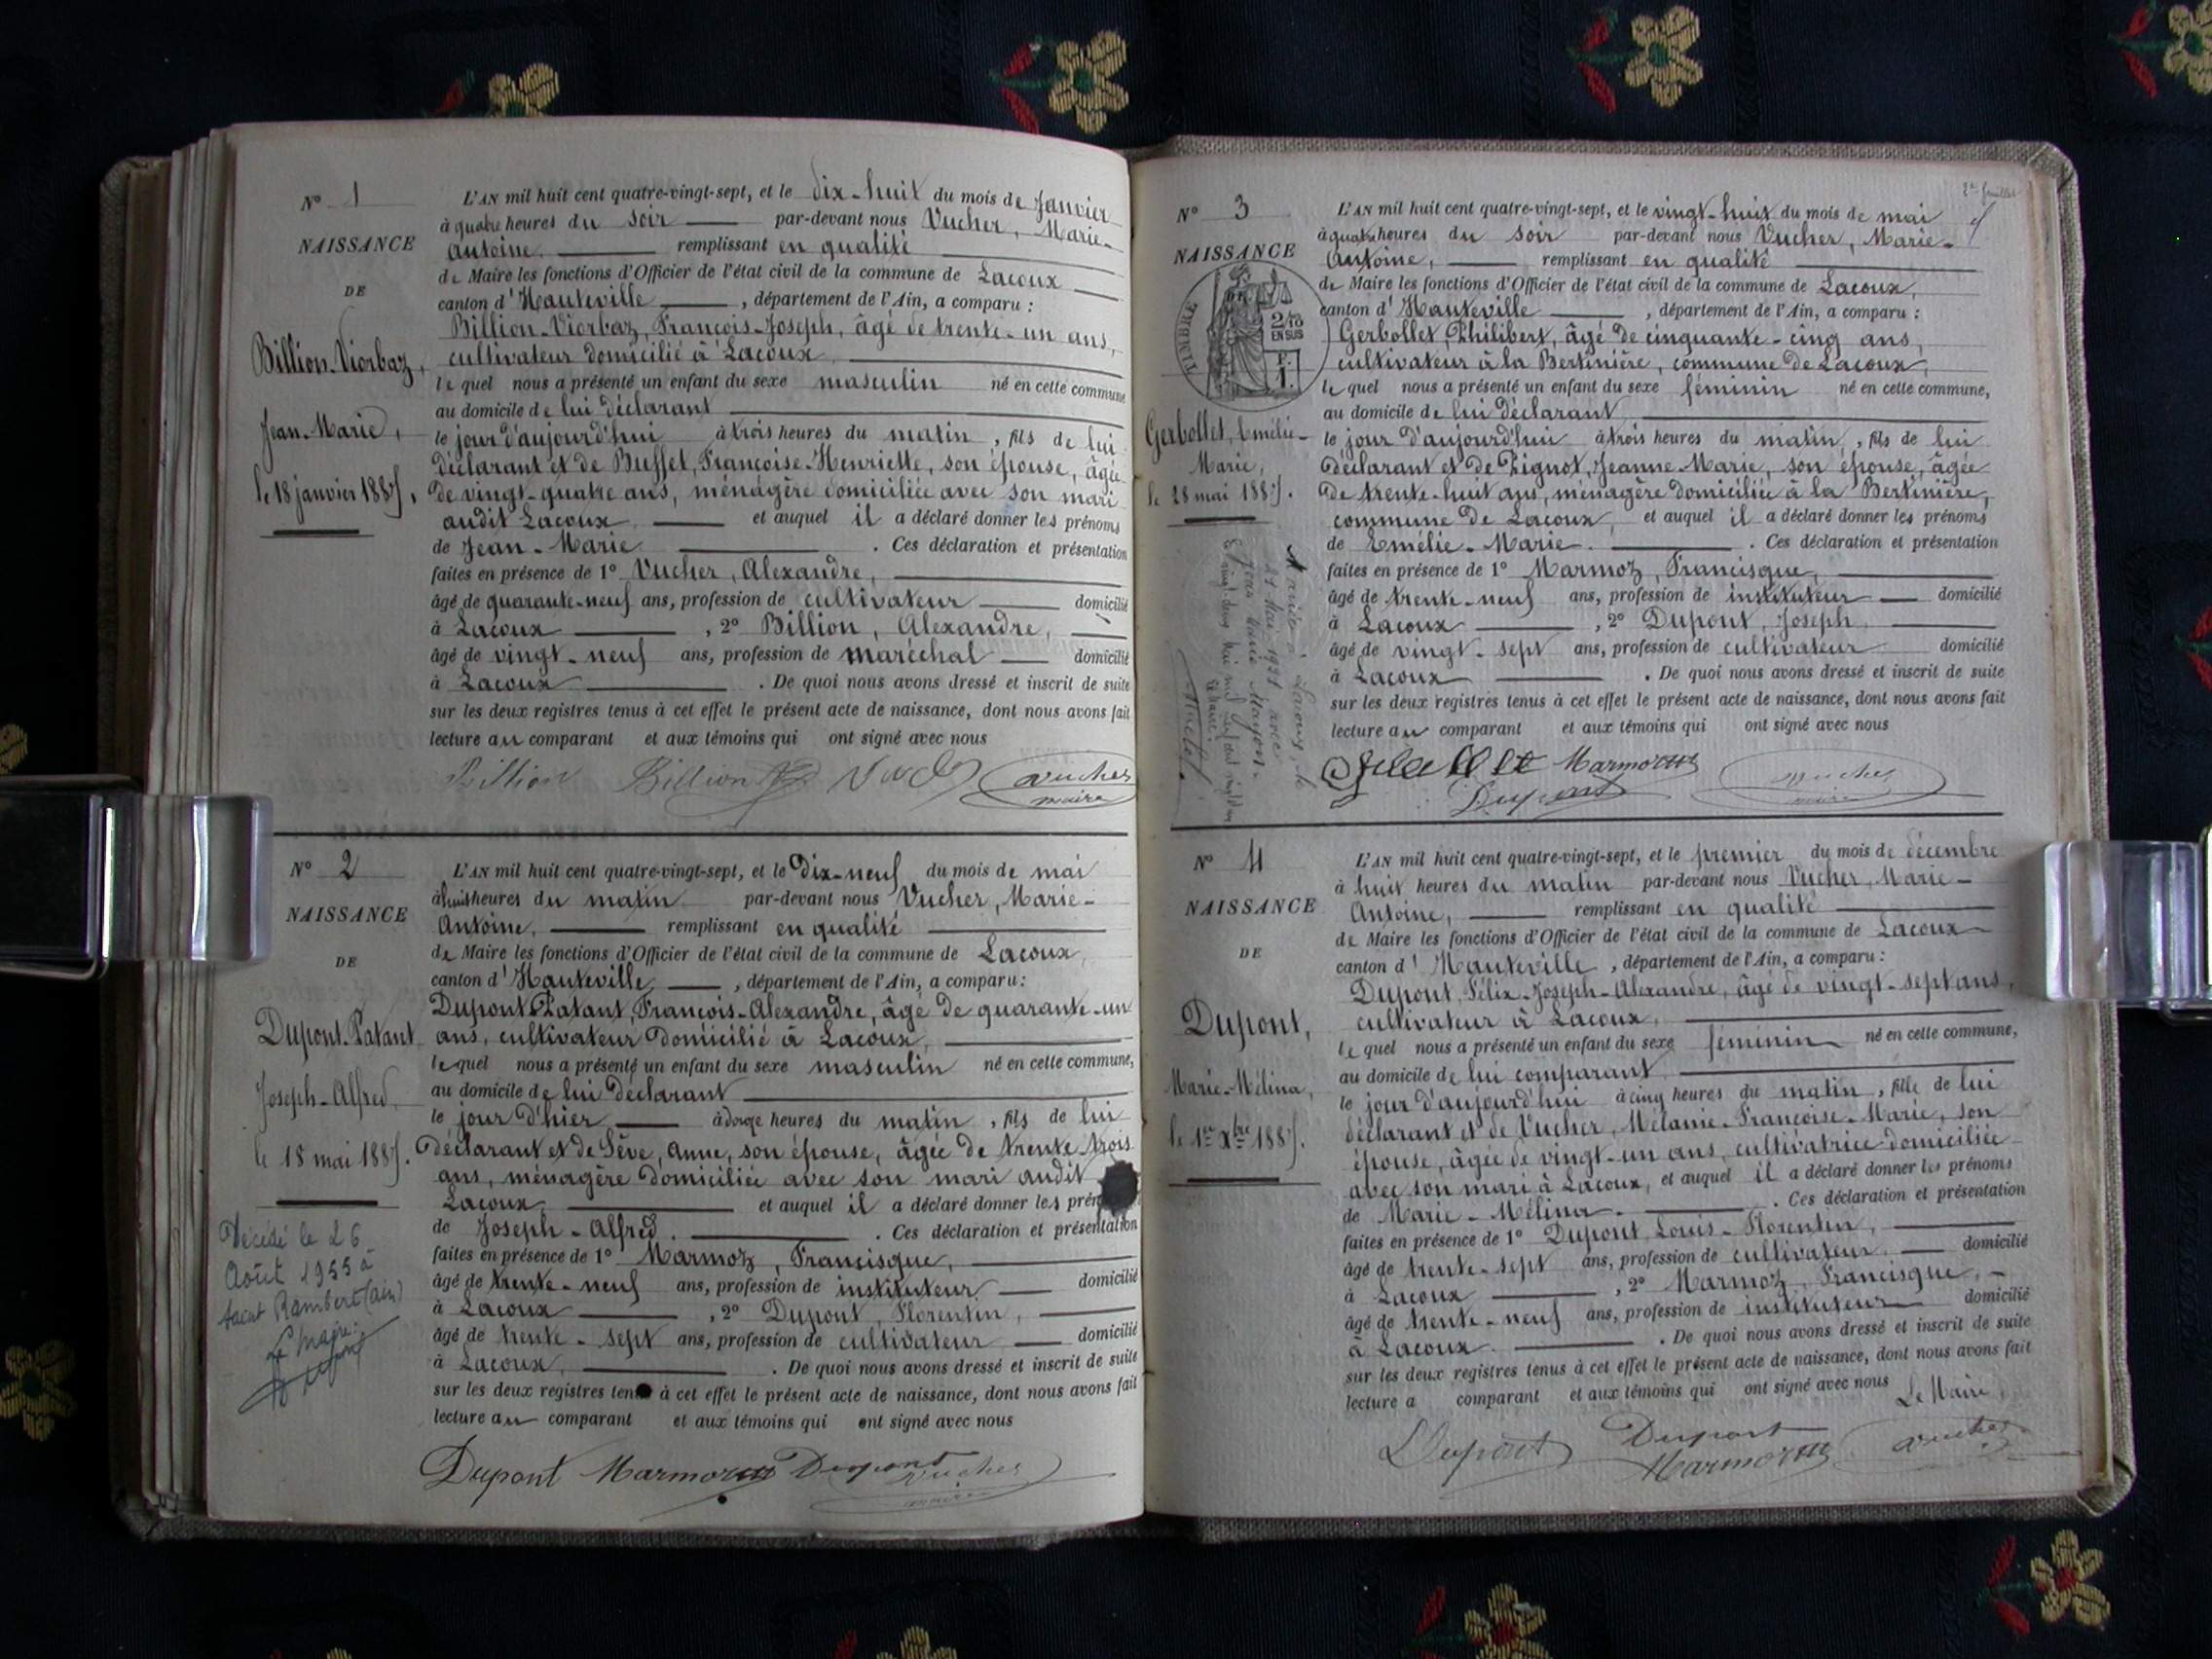 N° 1
NAISSANCE
DE
Billion-Viorbaz,
Jean-Marie,
le 18 janvier 1887.
L'AN mil huit cent quatre-vingt-sept, et le dix-huit du mois de Janvier
à quatre heures du soir par-devant nous Vucher, Marie-
Antoine, remplissant en qualité
de Maire les fonctions d'Officier de l'état civil de la commune de Lacoux
canton d'Hauteville, département de l'Ain, a comparu :
Billion-Viorbaz, François-Joseph, âgé de trente-un ans,
cultivateur domicilié à Lacoux,
lequel nous a présenté un enfant du sexe masculin né en cette commune
au domicile de lui déclarant
le jour d'aujourd'hui à trois heures du matin, fils de lui
déclarant et de Buffet, Françoise-Henriette, son épouse, âgée
de vingt-quatre ans, ménagère domiciliée avec son mari
audit Lacoux et auquel il a déclaré donner les prénoms
de Jean-Marie. Ces déclaration et présentation
faites en présence de 1° Vucher, Alexandre,
âgé de quarante-neuf ans, profession de cultivateur domicilié
à Lacoux, 2° Billion, Alexandre,
âgé de vingt-neuf ans, profession de maréchal domicilié
à Lacoux. De quoi nous avons dressé et inscrit de suite
sur les deux registres tenus à cet effet le présent acte de naissance, dont nous avons fait
lecture au comparant et aux témoins qui ont signé avec nous
Billion Billion Vucher
maire
N° 2
NAISSANCE
DE
Dupont-Patant
Joseph-Alfred,
le 18 mai 1887.
Décédé le 26
Août 1955 à
Saint Rambert (Ain)
Le Maire:
L'AN mil huit cent quatre-vingt-sept, et le dix-neuf du mois de mai
à huit heures du matin par-devant nous Vucher, Marie-
Antoine, remplissant en qualité
de Maire les fonctions d'Officier de l'état civil de la commune de Lacoux,
canton d'Hauteville, département de l'Ain, a comparu :
Dupont Patant, François-Alexandre, âgé de quarante-un
ans, cultivateur domicilié à Lacoux,
lequel nous a présenté un enfant du sexe masculin né en cette commune,
au domicile de lui déclarant
le jour d'hier à douze heures du matin, fils de lui
déclarant et de Sève, Anne, son épouse, âgée de trente-trois
ans, ménagère domiciliée avec son mari audit
Lacoux, et auquel il a déclaré donner les prén
de Joseph-Alfred. Ces déclaration et présentation
faites en présence de 1° Marmoz, Francisque,
âgé de trente-neuf ans, profession de instituteur domicilié
à Lacoux, 2° Dupont, Florentin,
âgé de trente-sept ans, profession de cultivateur domicilié
à Lacoux. De quoi nous avons dressé et inscrit de suite
sur les deux registres tenus à cet effet le présent acte de naissance, dont nous avons fait
lecture au comparant et aux témoins qui ont signé avec nous
Dupont Marmoz Dupont Vucher
maire
2e feuillet
N° 3
NAISSANCE
TIMBRE
2/10
EN SUS
F.
1.
Gerbollet, Emélie-
Marie,
le 28 mai 1887.
L'AN mil huit cent quatre-vingt-sept, et le vingt-huit du mois de mai
à quatre heures du soir par-devant nous Vucher, Marie-
Antoine, remplissant en qualité
de Maire les fonctions d'Officier de l'état civil de la commune de Lacoux,
canton d'Hauteville, département de l'Ain, a comparu :
Gerbollet, Philibert, âgé de cinquante-cinq ans,
cultivateur à la Bertinière, commune de Lacoux,
lequel nous a présenté un enfant du sexe féminin né en cette commune,
au domicile de lui déclarant
le jour d'aujourd'hui à trois heures du matin, fils de lui
déclarant et de Pignot, Jeanne-Marie, son épouse, âgée
de trente-huit ans, ménagère domiciliée à la Bertinière,
commune de Lacoux, et auquel il a déclaré donner les prénoms
de Emélie-Marie. Ces déclaration et présentation
faites en présence de 1° Marmoz, Francisque,
âgé de trente-neuf ans, profession de instituteur domicilié
à Lacoux, 2° Dupont, Joseph,
âgé de vingt-sept ans, profession de cultivateur domicilié
à Lacoux. De quoi nous avons dressé et inscrit de suite
sur les deux registres tenus à cet effet le présent acte de naissance, dont nous avons fait
lecture au comparant et aux témoins qui ont signé avec nous
Marmoz
Dupont Vucher
maire
Mariée à Lacoux, le
N° 4
NAISSANCE
DE
Dupont,
Marie-Mélina,
le 1er Xbre 1887.
L'AN mil huit cent quatre-vingt-sept, et le premier du mois de décembre
à huit heures du matin par-devant nous Vucher, Marie-
Antoine, remplissant en qualité
de Maire les fonctions d'Officier de l'état civil de la commune de Lacoux
canton d'Hauteville, département de l'Ain, a comparu :
Dupont, Félix-Joseph-Alexandre, âgé de vingt-sept ans,
cultivateur à Lacoux,
lequel nous a présenté un enfant du sexe féminin né en cette commune,
au domicile de lui comparant
le jour d'aujourd'hui à cinq heures du matin, fille de lui
déclarant et de Vucher, Mélanie-Françoise-Marie, son
épouse, âgée de vingt-un ans, cultivatrice domiciliée
avec son mari à Lacoux, et auquel il a déclaré donner les prénoms
de Marie-Mélina. Ces déclaration et présentation
faites en présence de 1° Dupont, Louis-Florentin,
âgé de trente-sept ans, profession de cultivateur domicilié
à Lacoux, 2° Marmoz, Francisque,
âgé de trente-neuf ans, profession de instituteur domicilié
à Lacoux. De quoi nous avons dressé et inscrit de suite
sur les deux registres tenus à cet effet le présent acte de naissance, dont nous avons fait
lecture a comparant et aux témoins qui ont signé avec nous
Le Maire,
Dupont Dupont Vucher
Marmoz